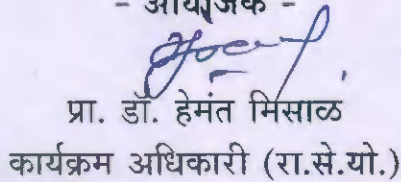 - आयोजक -
प्रा. डॉ. हेमंत मिसाळ
कार्यक्रम अधिकारी (रा.से.यो.)